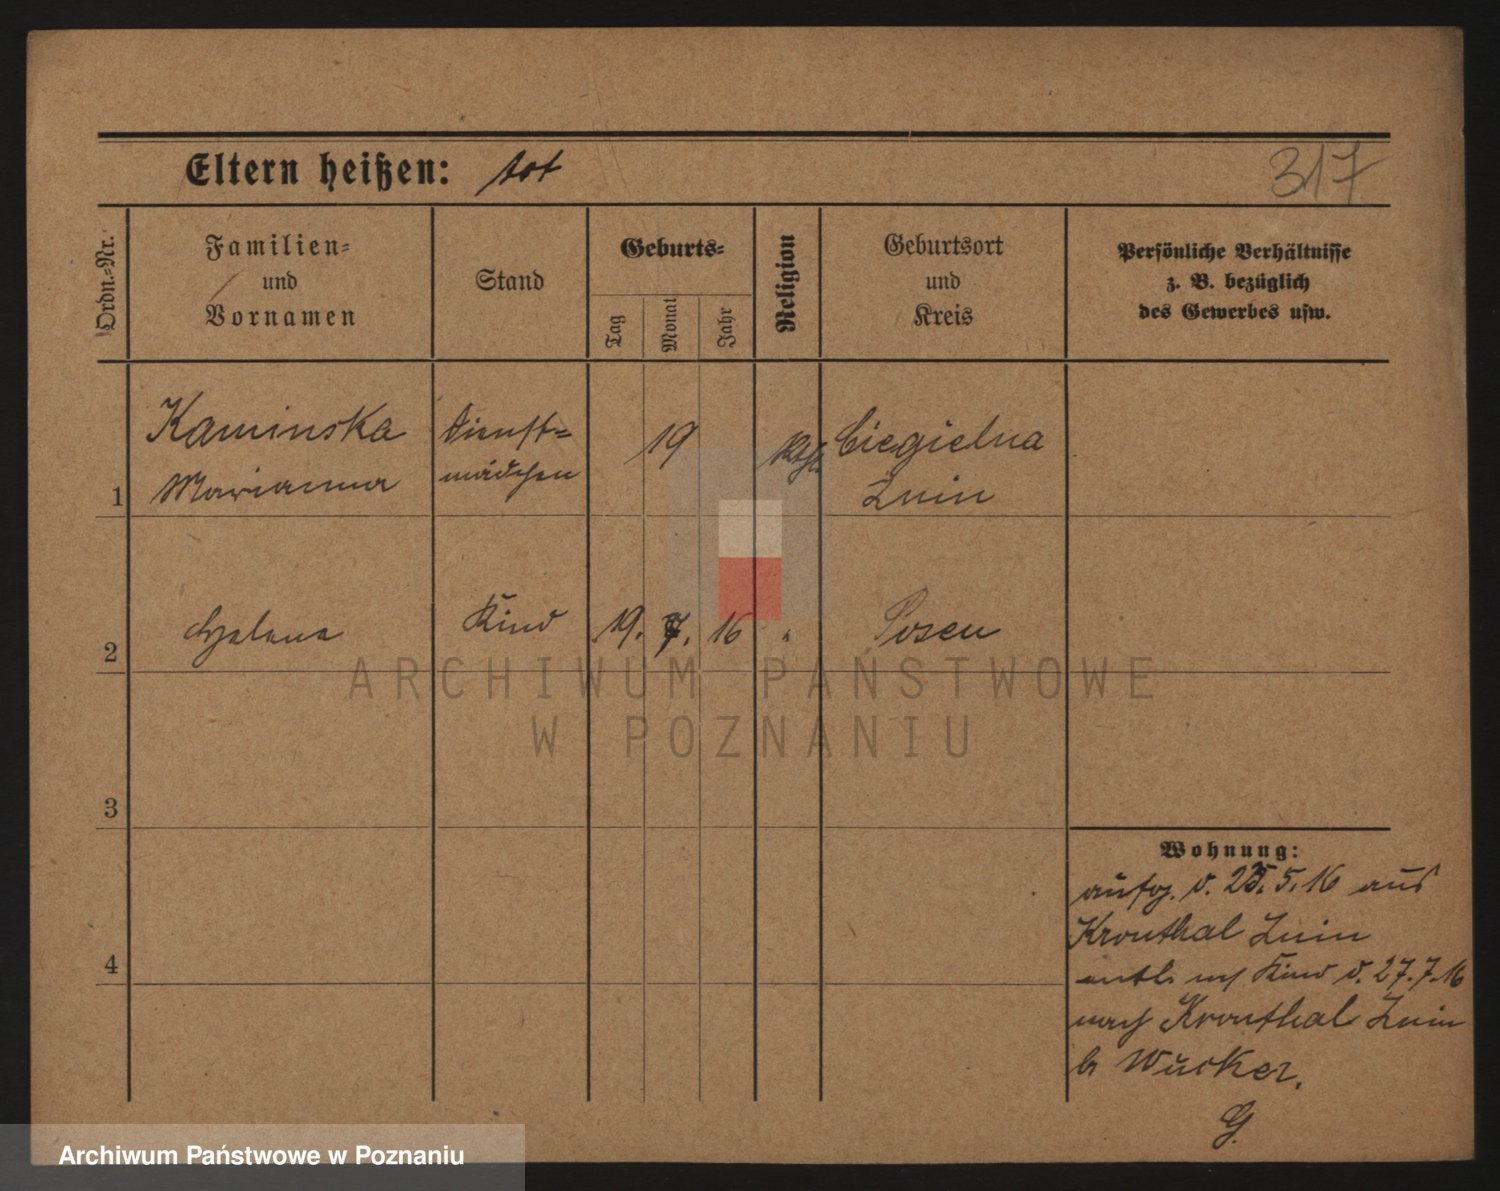 Eltern heißen: tot
317
Ordn.-Nr.
Familien-
und
Vornamen
Stand
Geburts-
Tag
Monat
Jahr
Religion
Geburtsort
und
Kreis
Persönliche Verhältnisse
z. B. bezüglich
des Gewerbes usw.
1
Kaminska
Marianna
Dienst=
mädchen
19
kth.
Ciegielna
Znin
2
Helene
Kind
19. 7. 16
"
Posen
3
4
Wohnung:
aufg. v. 25.5.16 aus
Kronthal Znin
entl. m Kind d. 27.7.16
nach Kronthal Znin
b Wucker.
G.
ARCHIWUM PAŃSTWOWE
W POZNANIU
Archiwum Państwowe w Poznaniu